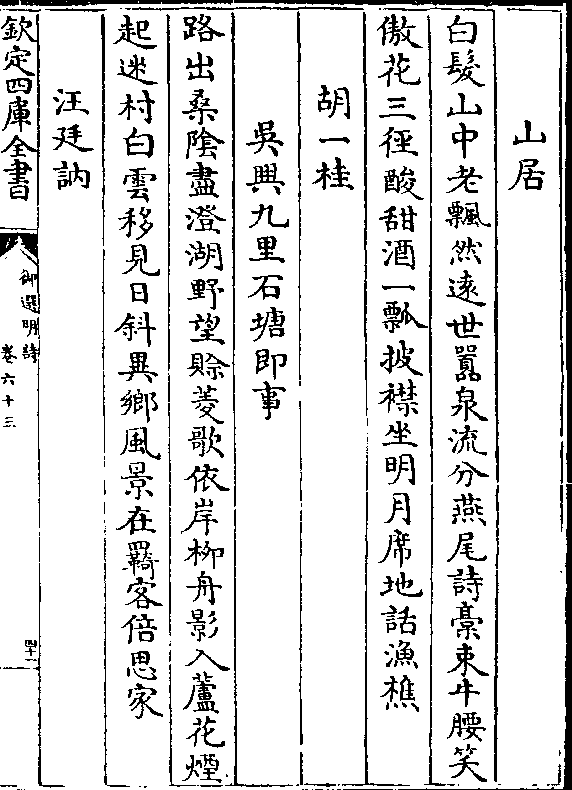 山居
白髮山中老飄然遠世囂泉流分燕尾詩藁束牛腰笑
傲花三徑酸甜酒一瓢披襟坐明月席地話漁樵
胡一桂
吳興九里石塘即事
路出桑陰盡澄湖野望賒菱歌依岸柳舟影入蘆花煙
起迷村白雲移見日斜異鄉風景在羇客倍思家
汪廷訥
欽定四庫全書
御選明詩
卷六十三
四十二